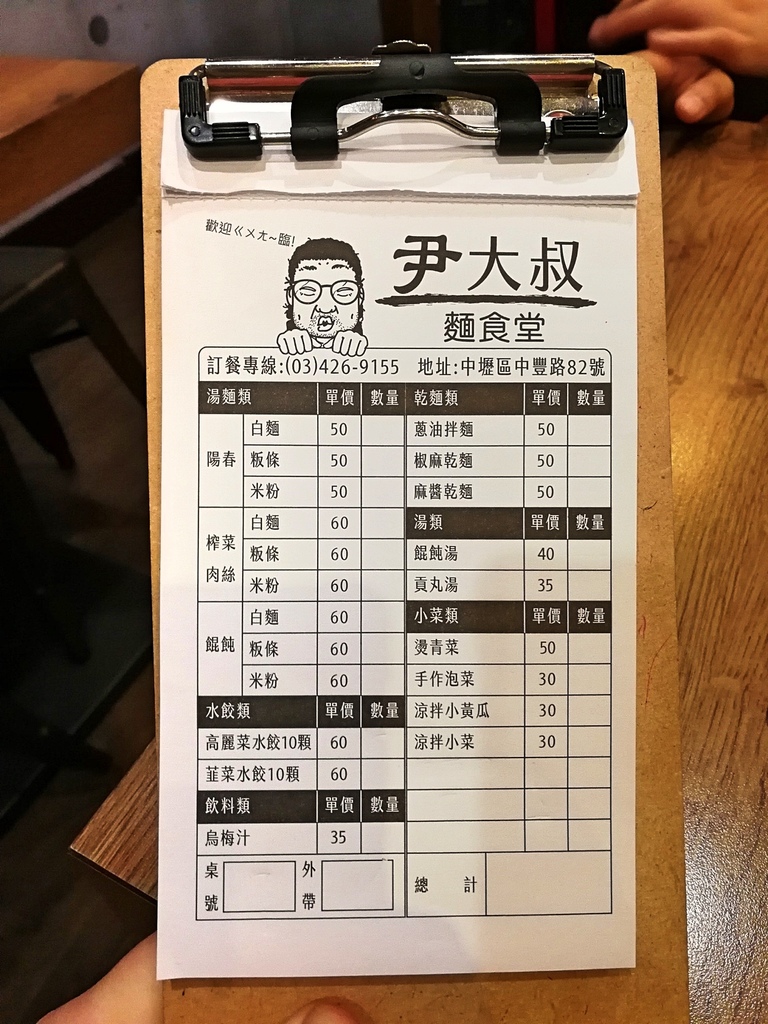 歡迎ㄍㄨㄤ~臨!
尹大叔
麵食堂
訂餐專線:(03)426-9155 地址:中壢區中豐路82號
湯麵類 單價 數量
陽春
白麵 50
粄條 50
米粉 50
榨菜
肉絲
白麵 60
粄條 60
米粉 60
餛飩
白麵 60
粄條 60
米粉 60
水餃類 單價 數量
高麗菜水餃10顆 60
韮菜水餃10顆 60
飲料類 單價 數量
烏梅汁 35
桌號
外帶
乾麵類 單價 數量
蔥油拌麵 50
椒麻乾麵 50
麻醬乾麵 50
湯類 單價 數量
餛飩湯 40
貢丸湯 35
小菜類 單價 數量
燙青菜 50
手作泡菜 30
涼拌小黃瓜 30
涼拌小菜 30
總計